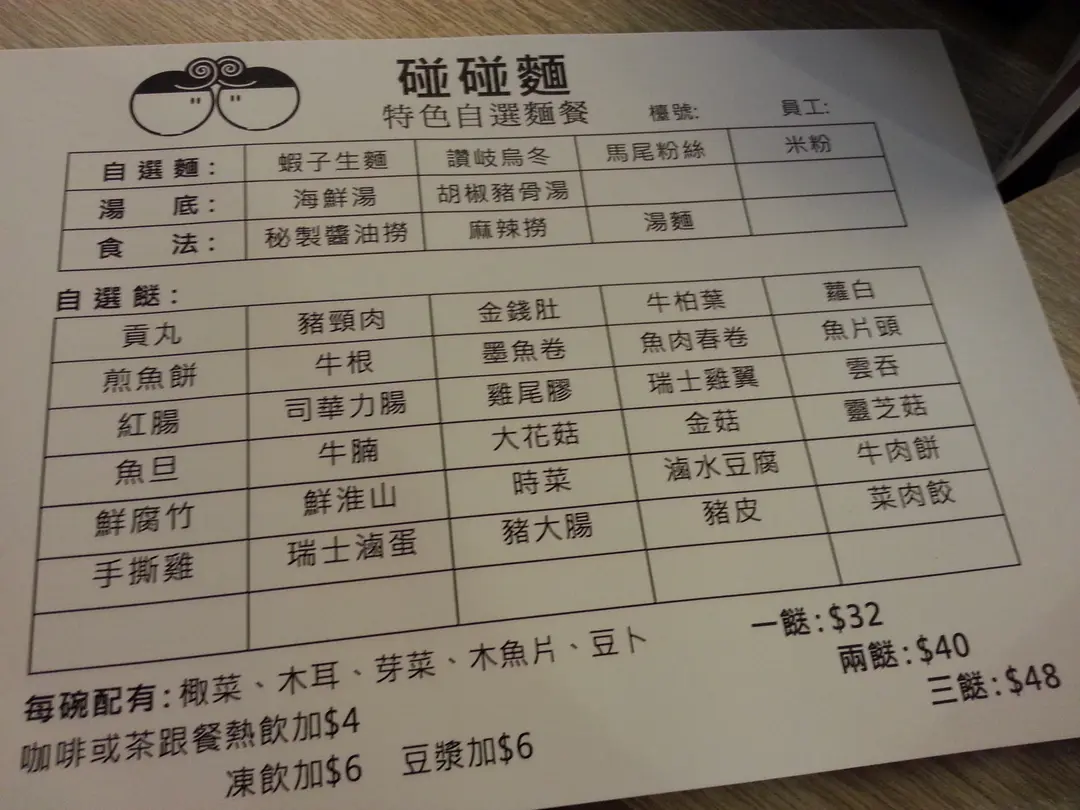 碰碰麵
特色自選麵餐 檯號: 員工:
自選麵: 蝦子生麵 讚岐烏冬 馬尾粉絲 米粉
湯底: 海鮮湯 胡椒豬骨湯
食法: 秘製醬油撈 麻辣撈 湯麵
自選餸:
貢丸 豬頸肉 金錢肚 牛柏葉 蘿白
煎魚餅 牛根 墨魚卷 魚肉春卷 魚片頭
紅腸 司華力腸 雞尾膠 瑞士雞翼 雲吞
魚旦 牛腩 大花菇 金菇 靈芝菇
鮮腐竹 鮮淮山 時菜 滷水豆腐 牛肉餅
手撕雞 瑞士滷蛋 豬大腸 豬皮 菜肉餃
每碗配有: 橄菜、木耳、芽菜、木魚片、豆卜
一餸:$32
兩餸:$40
三餸:$48
咖啡或茶跟餐熱飲加$4
凍飲加$6 豆漿加$6